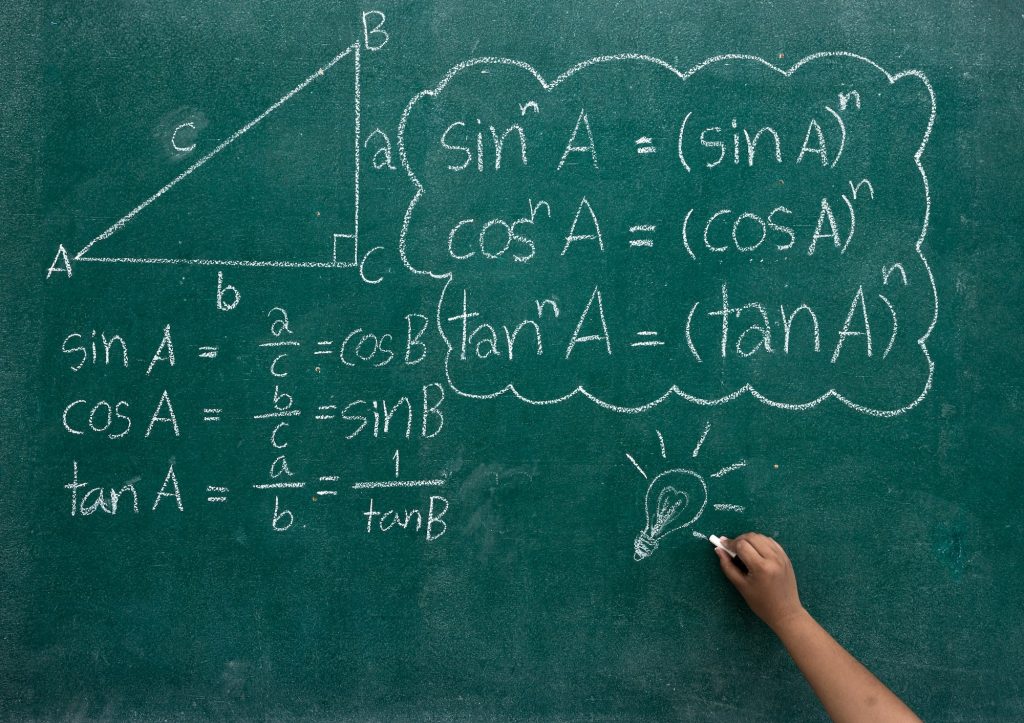 B
c
a
A
C
b
sin A = a/c = cos B
cos A = b/c = sin B
tan A = a/b = 1/tan B
sinⁿ A = (sin A)ⁿ
cosⁿ A = (cos A)ⁿ
tanⁿ A = (tan A)ⁿ